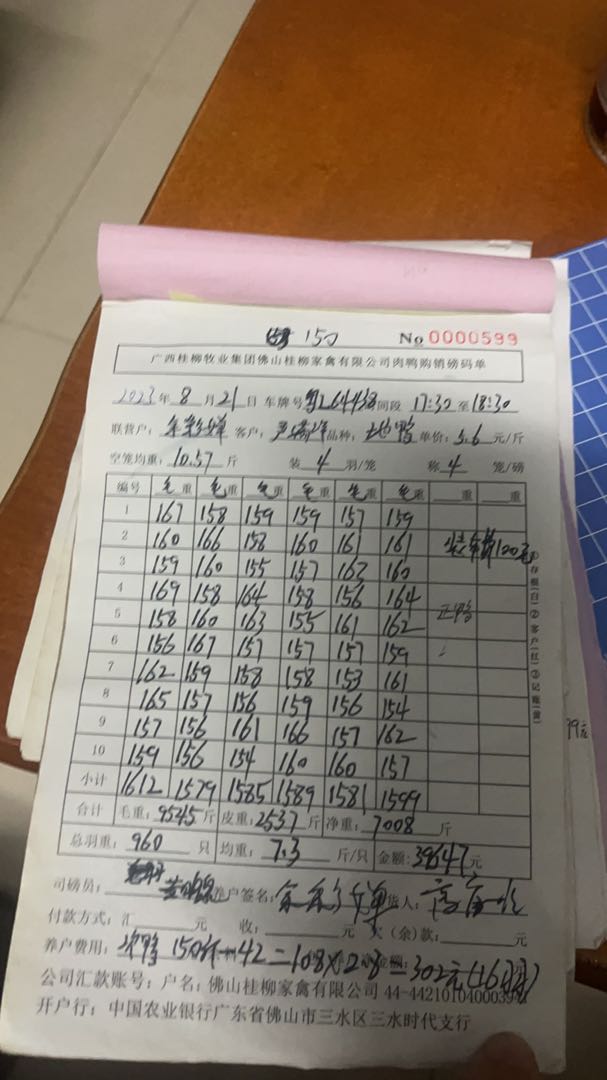 150 No 0000599
广西桂柳牧业集团佛山桂柳家禽有限公司肉鸭购销磅码单
2023年8月21日 车牌号 间段 17:30至18:30
联营户： 客户： 品种： 鸭 单价：5.6元/斤
空笼均重：10.57斤 装4羽/笼 称4笼/磅
编号 毛重 毛重 毛重 毛重 毛重 毛重 重 重
1 167 158 159 159 157 159
2 160 166 158 160 161 161 100元
3 159 160 155 157 163 160
4 169 158 164 158 156 164
5 158 160 163 155 161 162 正鸭
6 156 167 157 157 157 159
7 162 159 158 158 153 161
8 165 157 156 159 156 154
9 157 156 161 166 157 162
10 159 156 154 160 160 157
小计 1612 1579 1585 1589 1581 1599
合计 毛重：9545斤 皮重：2537斤 净重：7008斤
总羽重：960只 均重：7.3斤/只 金额：39647元
①存根(白)②客户(红)③记账(黄)
司磅员： 养户签名： 货人：
付款方式：汇 元 收： 元 欠(余)款： 元
养户费用： 鸭 150斤-42=108×2.8=302元(16羽)
公司汇款账号：户名：佛山桂柳家禽有限公司 44-442101040003
开户行：中国农业银行广东省佛山市三水区三水时代支行